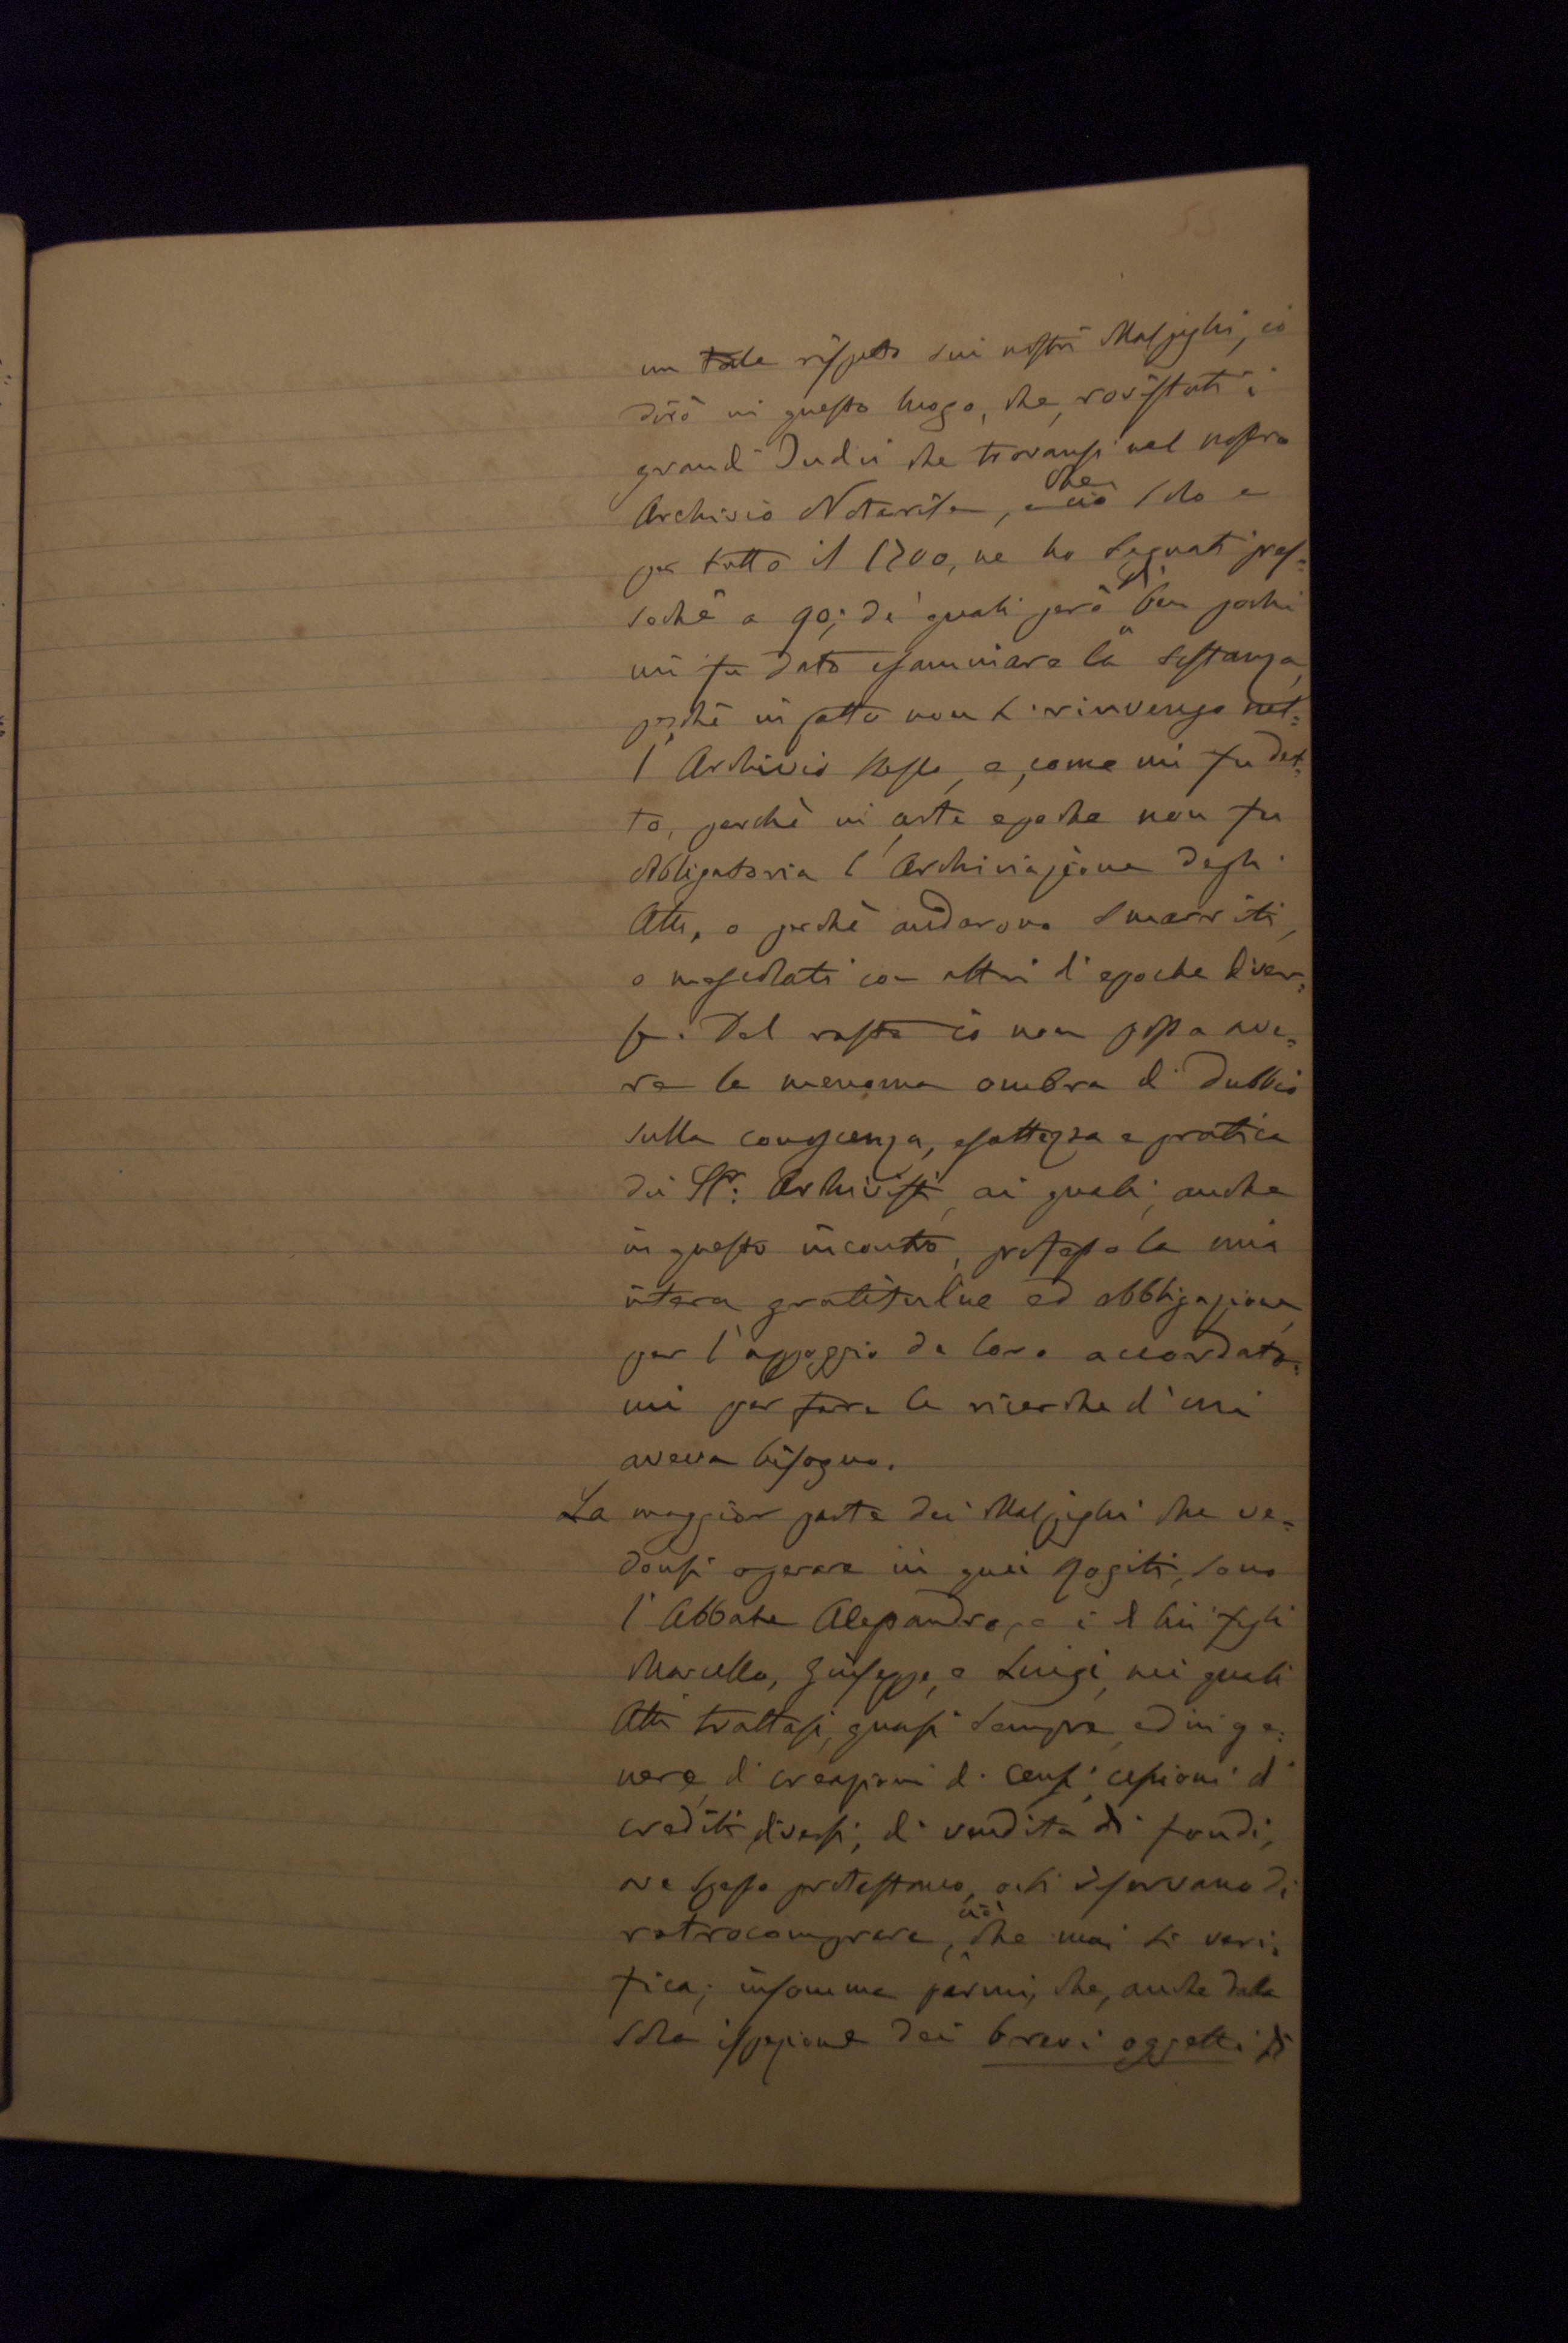 55
un tale rispetto sui nostri Malpighi, io
dirò in questo luogo, che, rovistati i
grandi Indici che trovansi nel nostro
Archivio Notarile, e ciò che solo e
per tutto il 1700, ne ho segnati pres=
sochè a 90; de' quali però di ben pochi
mi fu dato esaminare la sostanza,
perchè in fatto non si rinvengo nel=
l'Archivio stesso, e, come mi fu det=
to, perchè in certe epoche non fu
obbligatoria l'Archiviazione degli
Atti, o perchè andarono smarriti,
o mescolati con altri di epoche diver=
se. Del resto io non posso ave=
re la menoma ombra di dubbio
sulla conoscenza, esattezza e pratica
dei SSr: Archivisti, ai quali, anche
in questo incontro, professo la mia
intera gratitudine ed obbligazione,
per l'appoggio da loro accordato=
mi per fare le ricerche di cui
aveva bisogno.
La maggior parte dei Malpighi che ve=
donsi operare in quei Rogiti, sono
l'Abbate Alessandro, e i di lui figli
Marcello, Giuseppe, e Luigi, nei quali
Atti trattasi, quasi sempre, ed in ge=
nere, di creazioni di censi, cessioni di
crediti diversi, di vendita di fondi,
ove spesso protestano, riservano di
retrocomprare, ciò che mai si veri=
fica; insomma parmi, che, anche dalla
sola ispezione dei brevi oggetti di